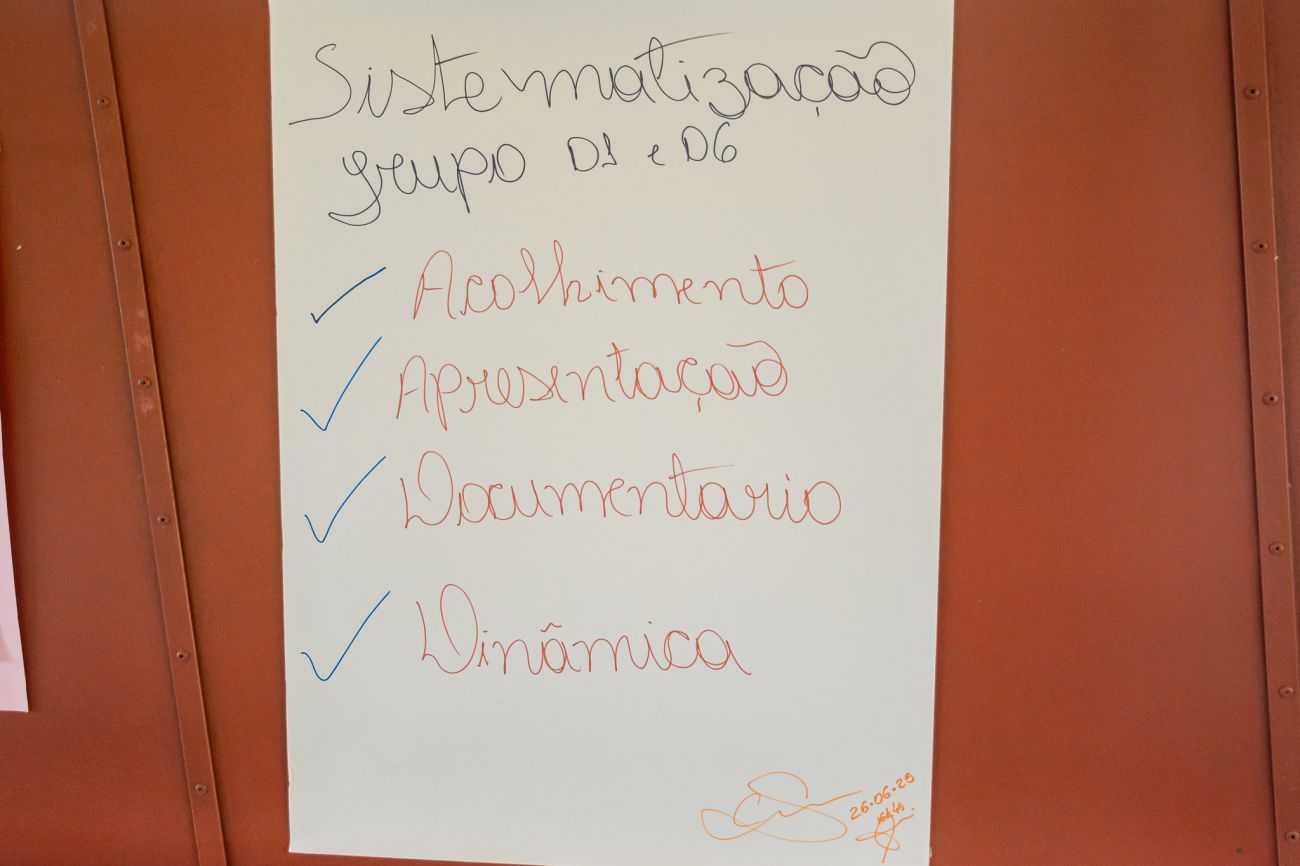 Sistematização
grupo D1 e D6
Acolhimento
Apresentação
Documentario
Dinâmica
26.06.25